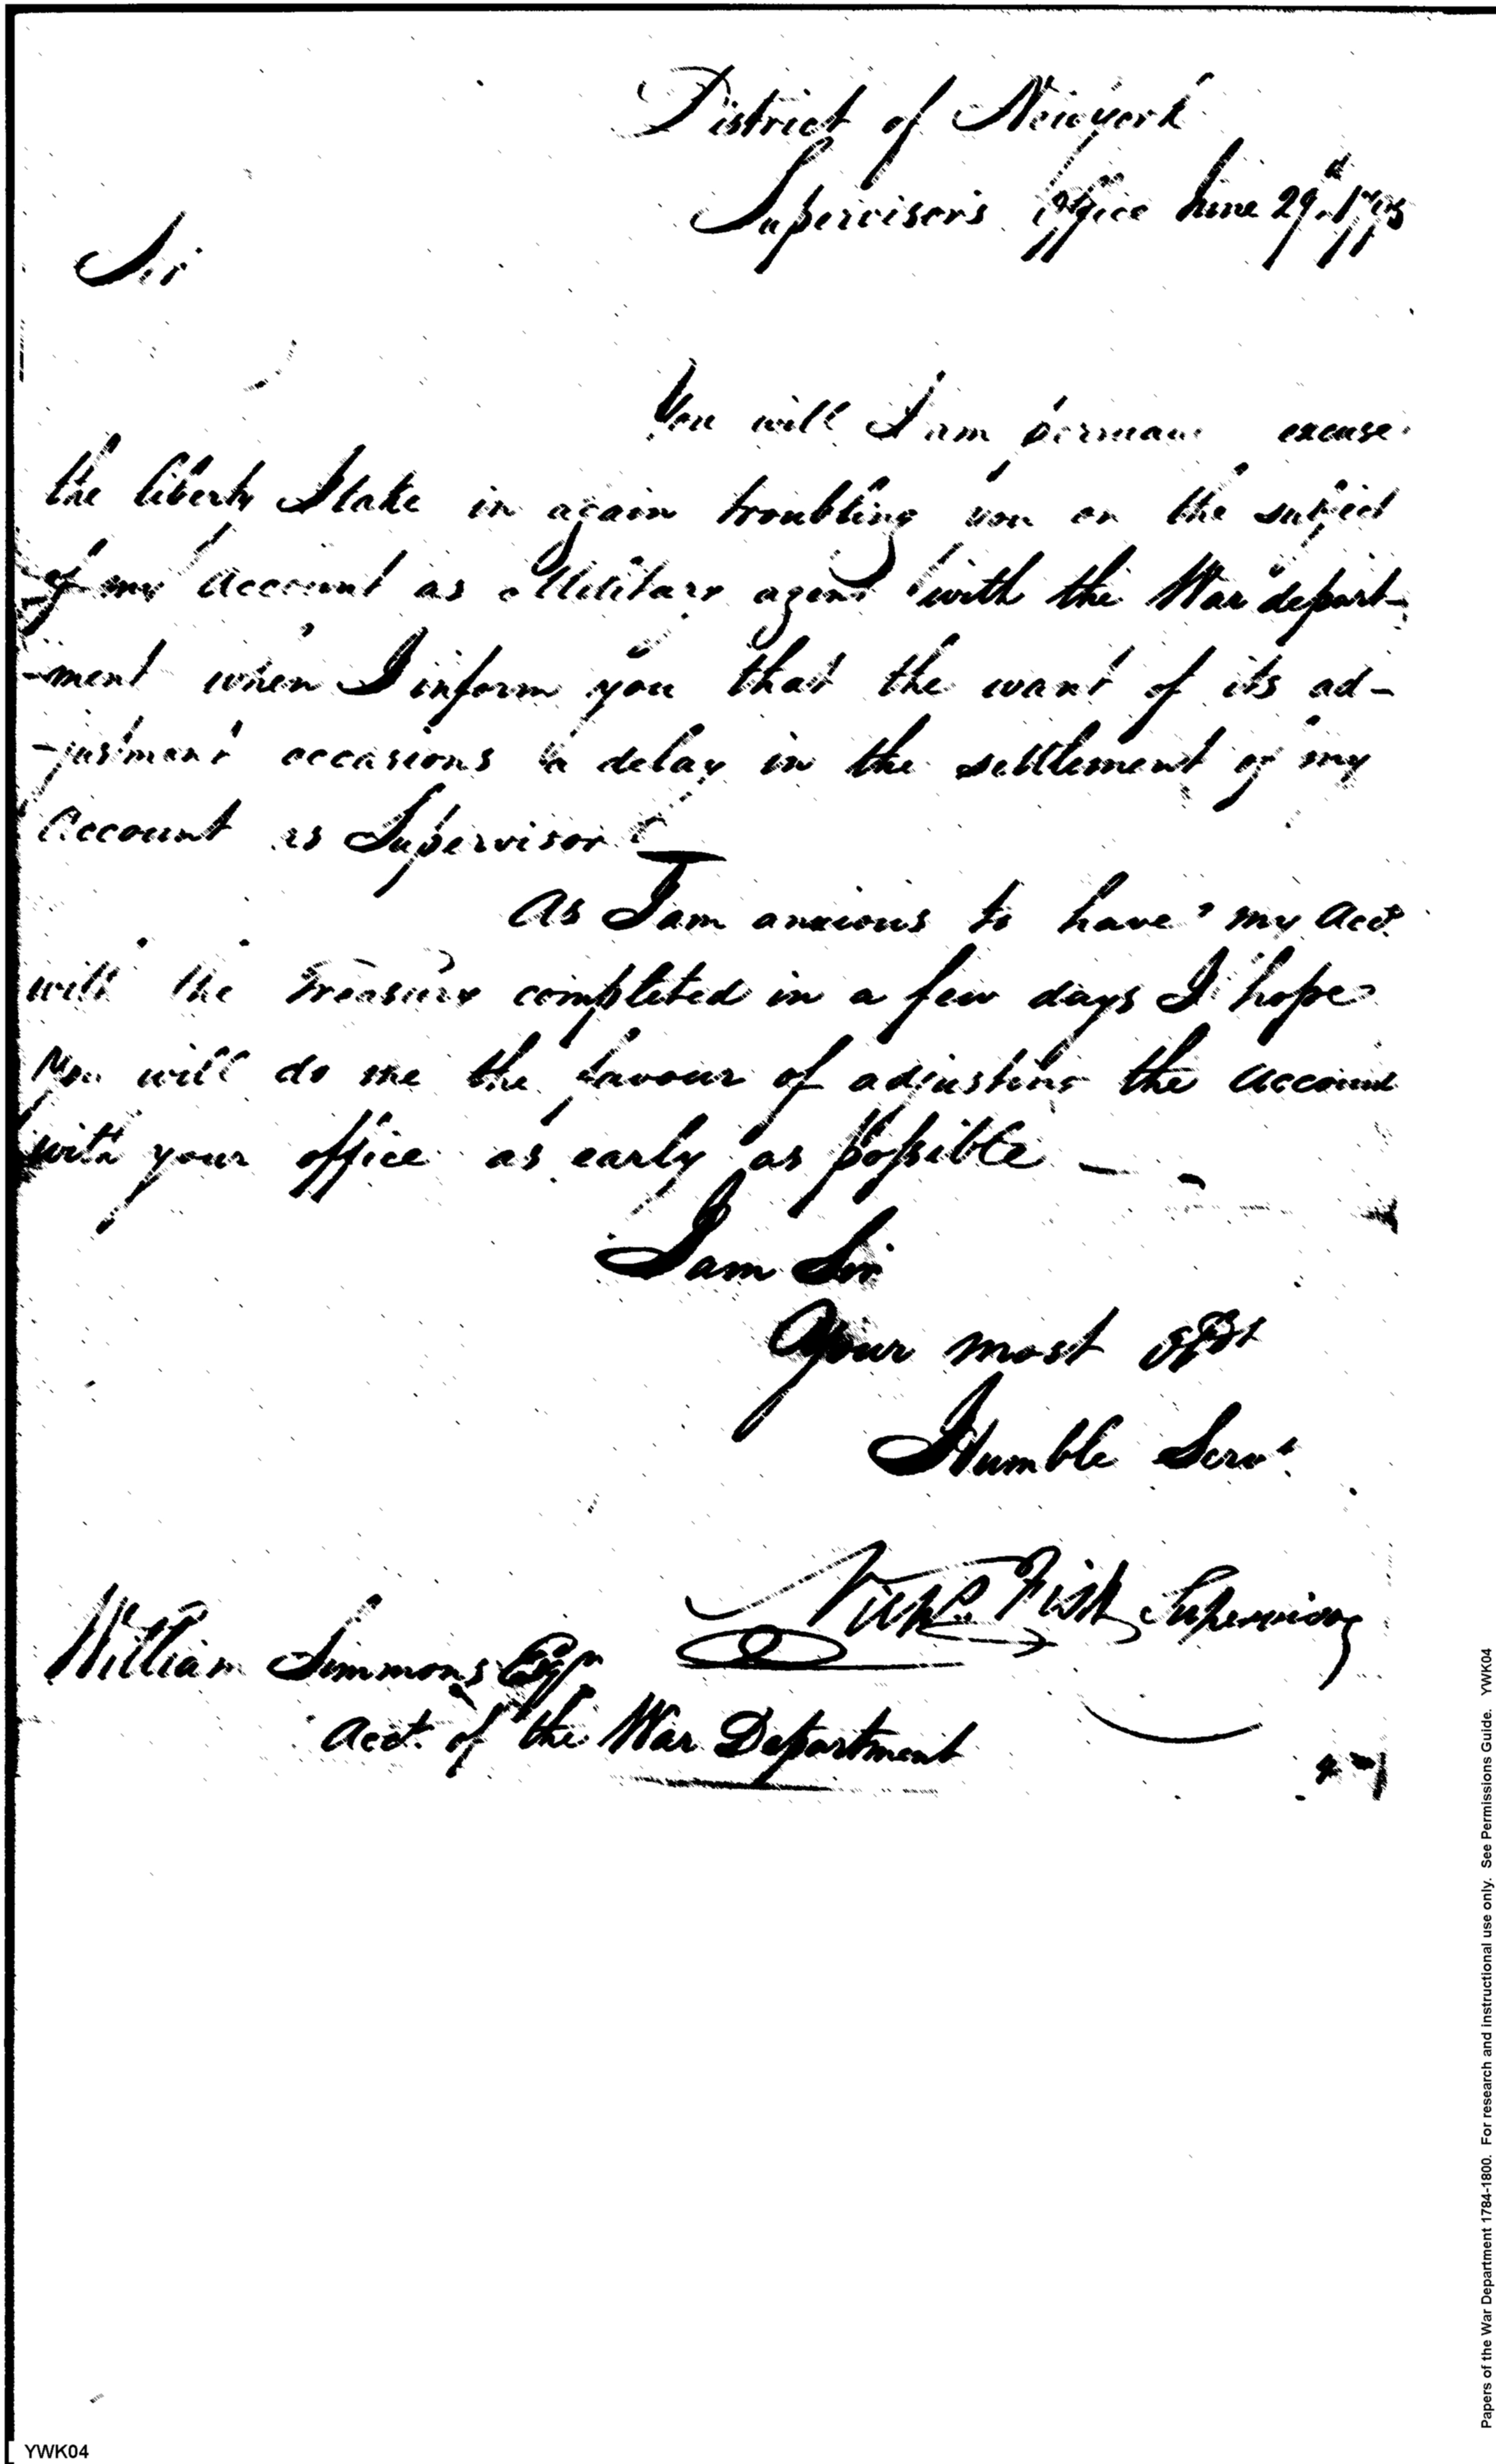 District of Newyork
Supervisor's Office June 29th 1795
Sir
You will I am excuse
the liberty I take in again troubling you on the subject
of my Account as Military agent with the War depart-
-ment when I inform you that the want of its ad-
-justment occasions a delay in the settlement of my
Account as Supervisor
As I am anxious to have my Acct.
with the Treasury completed in a few days I hope
you will do me the favour of adjusting the account
with your office as early as possible
I am Sir
your most Obdt
Humble Servt
Nichs. Fish Supervisor
William Simmons Esqr
Acct. of the War Department
Papers of the War Department 1784-1800. For research and instructional use only. See Permissions Guide. YWK04
YWK04